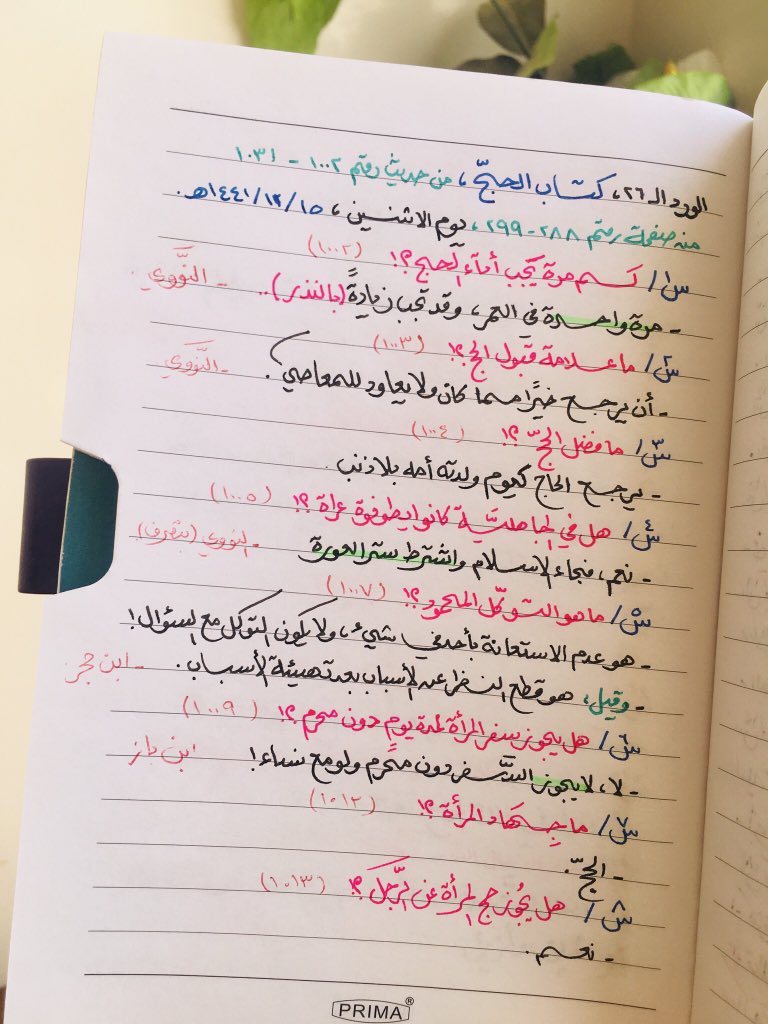 الورد الـ ٢٦، كتاب الحجّ، من حديث رقم ١٠٠٢ - ١٠٣١
من صفحة رقم ٢٨٨-٢٩٩، يوم الاثنين، ١٤٤١/١٢/١٥هـ.
س١/ كم مرة يجب أداء الحج؟! (١٠٠٢)
- مرة واحدة في العمر، وقد تجب زيادةً (بالنذر).. - النَّووي.
س٢/ ما علامة قبول الحج؟! (١٠٠٣)
- أن يرجع خيرًا مما كان ولا يعاود للمعاصي. - النَّووي
س٣/ ما فضل الحجّ؟! (١٠٠٤)
- يرجع الحاج كيوم ولدته أمه بلا ذنب.
س٤/ هل في الجاهليّة كانوا يطوفوة عراة؟! (١٠٠٥)
- نعم، فجاء الإسلام واشترط ستر العورة - النووي (بتصرف)
س٥/ ما هو التوكّل المحمود؟! (١٠٠٧)
- هو عدم الاستعانة بأحد في شيء، ولا يكون التوكل مع السؤال!
- وقيل، هو قطع النظر عن الأسباب بعد تهيئة الأسباب. - ابن حجر
س٦/ هل يجوز سفر المرأة لمدة يوم دون محرم؟! (١٠٠٩)
- لا، لا يجوز السَّفر دون محرم ولو مع نساء! ابن باز
س٧/ ما جِهاد المرأة؟! (١٠١٢)
- الحجّ.
س٨/ هل يجُوز حج المرأة عن الرَّجل؟! (١٠١٣)
- نعم.
PRIMA®